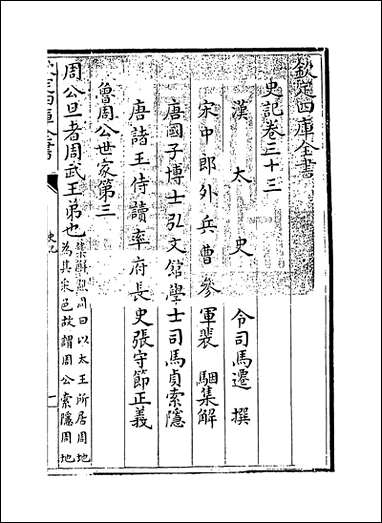 欽定四庫全書
史記卷三十三
漢太史令司馬遷撰
宋中郎外兵曹參軍裴駰集解
唐國子博士弘文館學士司馬貞索隱
唐諸王侍讀率府長史張守節正義
魯周公世家第三
周公旦者周武王弟也集解譙周曰以太王所居周地
為其采邑故謂周公索隱周地
史記
一